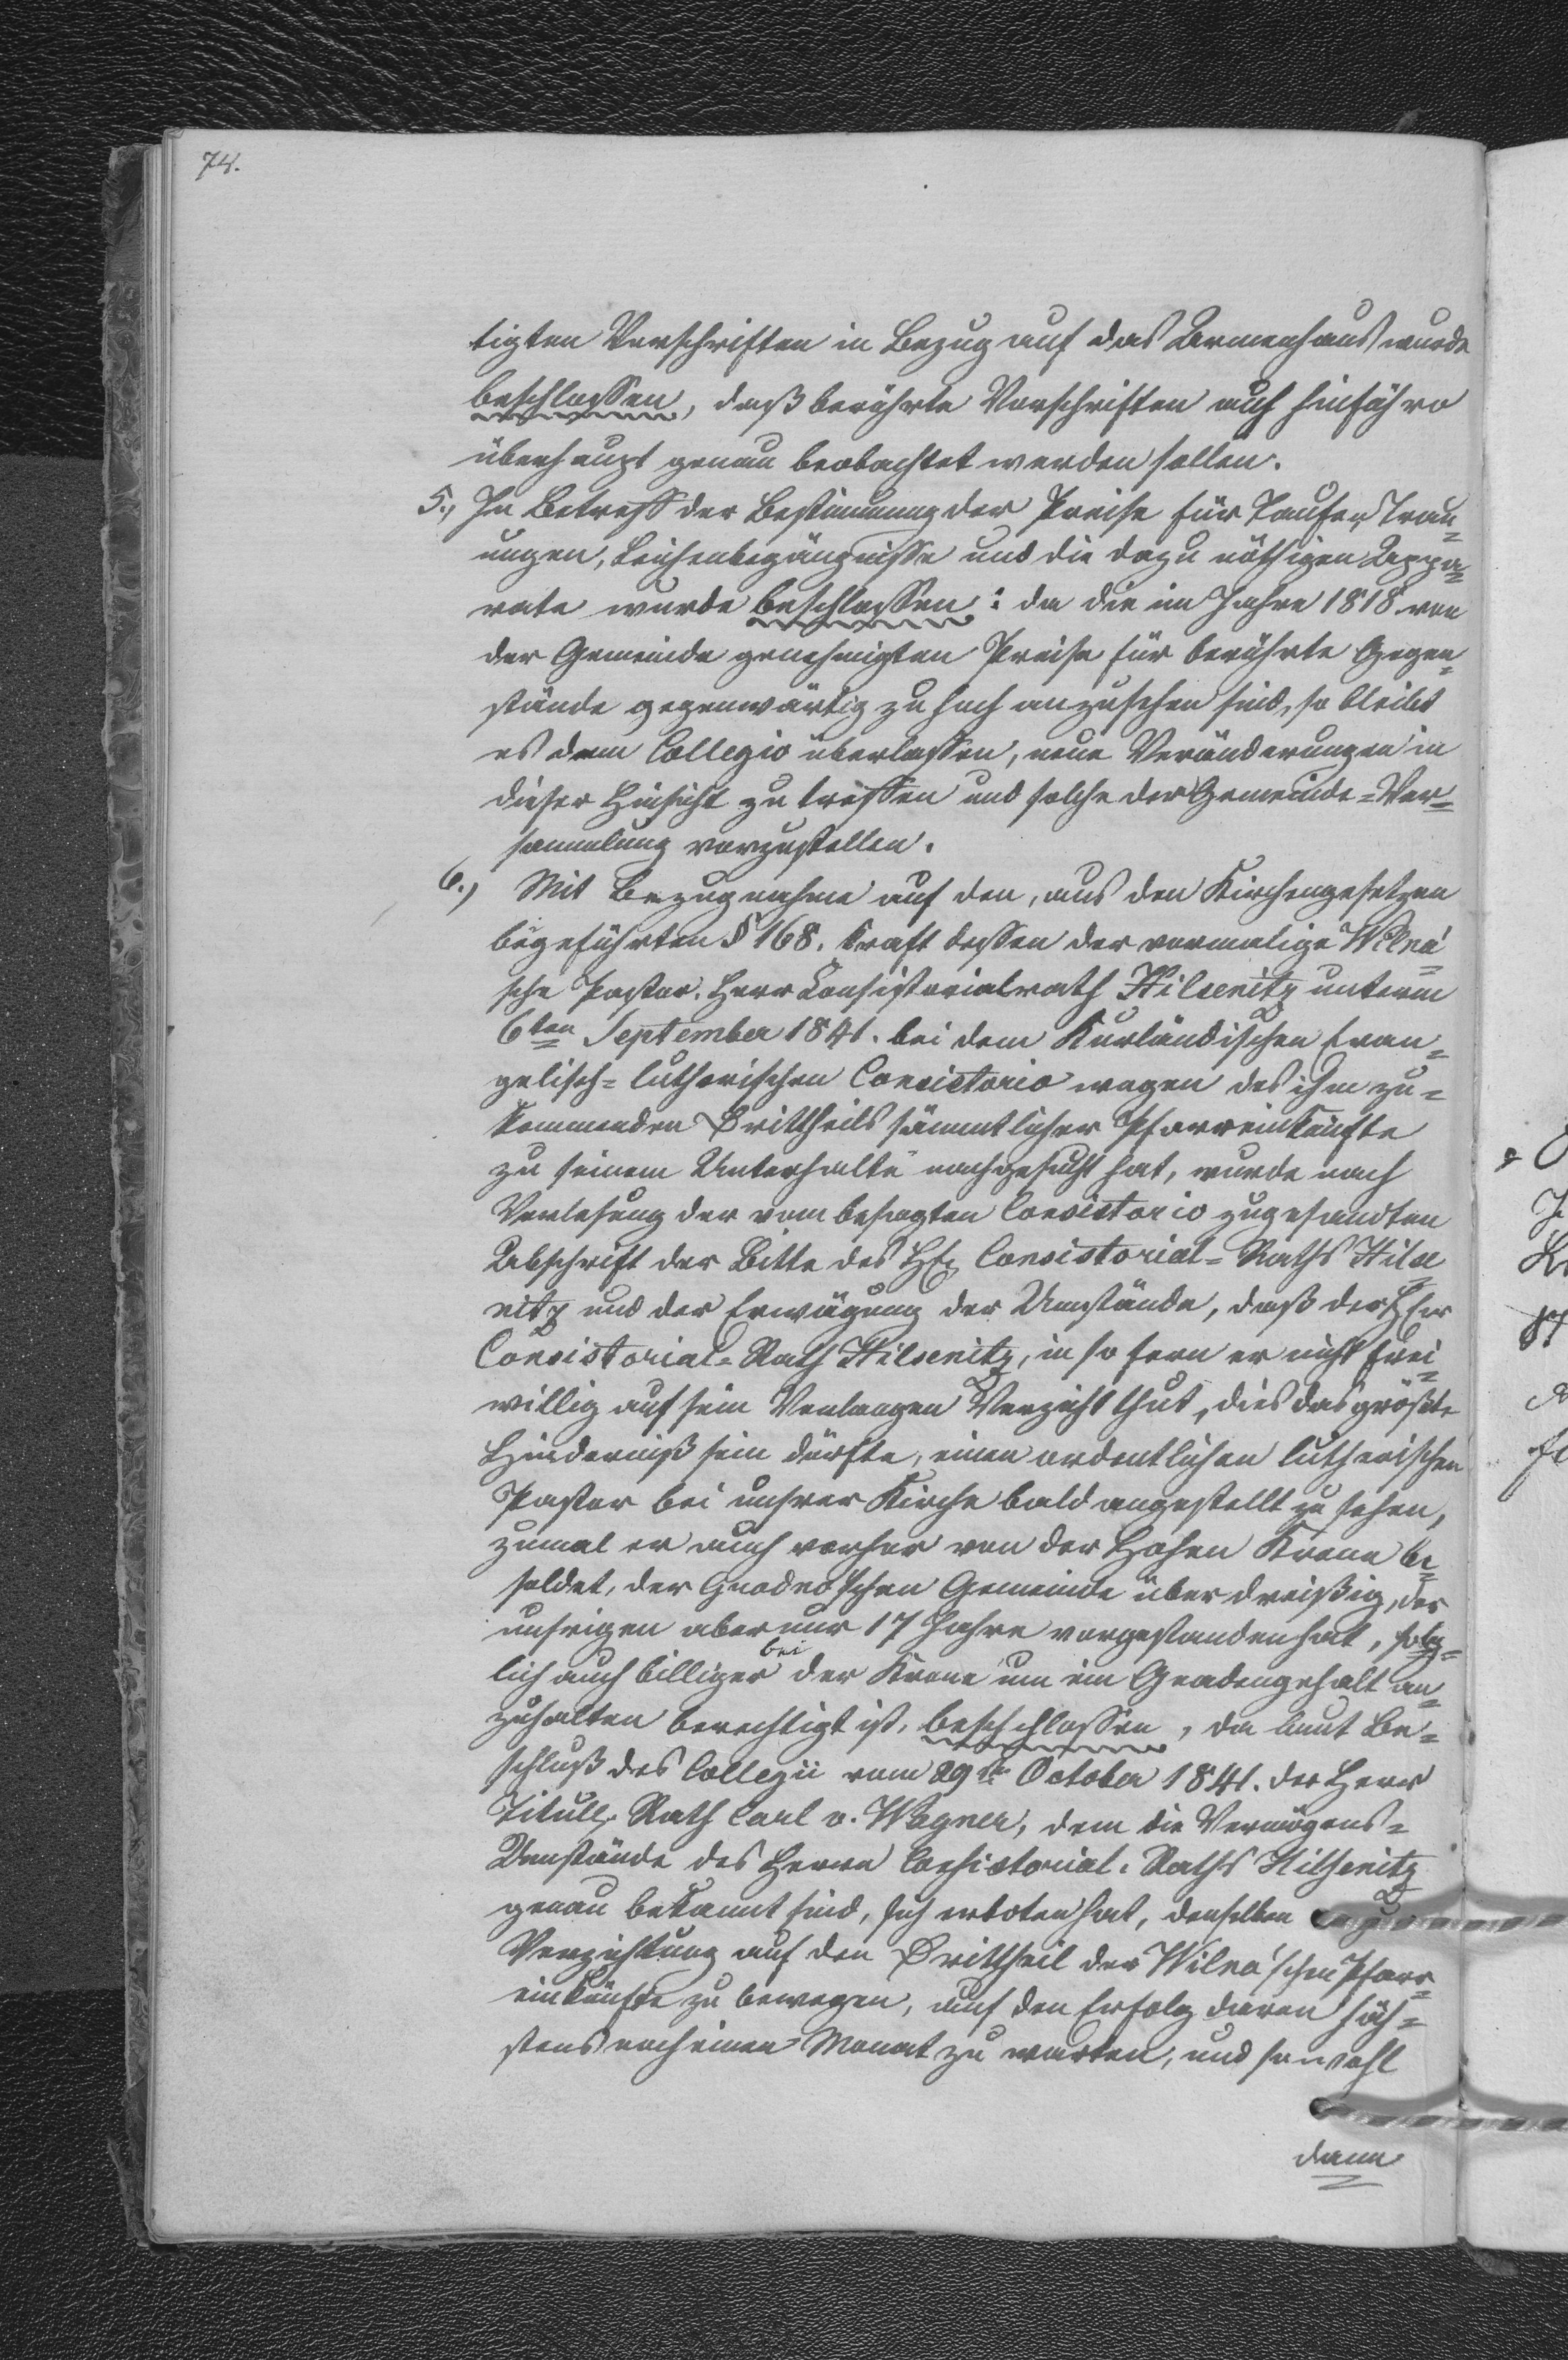 74.
tigten Vorschriften in Bezug auf das Armenhaus wurde
beschlossen, daß berührte Vorschriften auch hinführo
überhaupt genau beobachtet werden sollen.
5., In Betreff der Bestimmung der Preise für Taufen, Trau=
ungen, Leichenbegängnisse und die dazu nöthigen Appa=
rate wurde beschlossen: da die im Jahre 1818 von
der Gemeinde genehmigten Preise für berührte Gegen=
stände gegenwärtig zu hoch anzusehen sind, so bleibt
es dem Collegio überlassen, neue Veränderungen in
dieser Hinsicht zu treffen und solche der Gemeinde=Ver=
sammlung vorzustellen.
6., Mit Bezugnahme auf den, aus den Kirchengesetzen
beigeführten § 168. kraft dessen der vormalige Wilna'
sche Pastor. Herr Consistorialrath Hilsenitz unterm
6ten September 1841. bei dem Kurländischen Evan=
gelisch=lutherischen Consistorio wegen des ihm zu=
kommenden Drittheils sämmtlicher Pfarreinkünfte
zu seinem Unterhalte nachgesucht hat, wurde nach
Verlesung der vom besagten Consistorio zugesandten
Abschrift der Bitte des Consistorial=Raths Hilse
nitz und der Erwägung der Umstände, daß der Herr
Consistorial=Rath Hilsenitz, in so fern er nicht frei=
willig auf sein Verlangen Verzicht thut, dies das größte
Hinderniß sein dürfte, einen ordentlichen lutherischen
Pastor bei unsrer Kirche bald angestellt zu sehen,
zumal er auch vorher von der Hohen Krone be=
soldet, der Grodno'schen Gemeinde über dreißig, der
unsrigen aber nur 17 Jahre vorgestanden hat, folg=
lich auch billiger bei der Krone um ein Gnadengehalt an=
zuhalten berechtigt ist, beschchlossen, da laut Be=
schluß des Collegii vom 29ten October 1841. der Herr
Titull. Rath Carl v. Wagner, dem die Vermögens=
Umstände des Herrn Consistorial. Raths Hilsenitz
genau bekannt sind, sich erboten hat, denselben zu
Verzichtung auf den Drittheil der Wilna'schen Pfarr=
einkünfte zu bewegen, auf den Erfolg davon höch=
stens noch einen Monat zu warten, und sowohl
dann